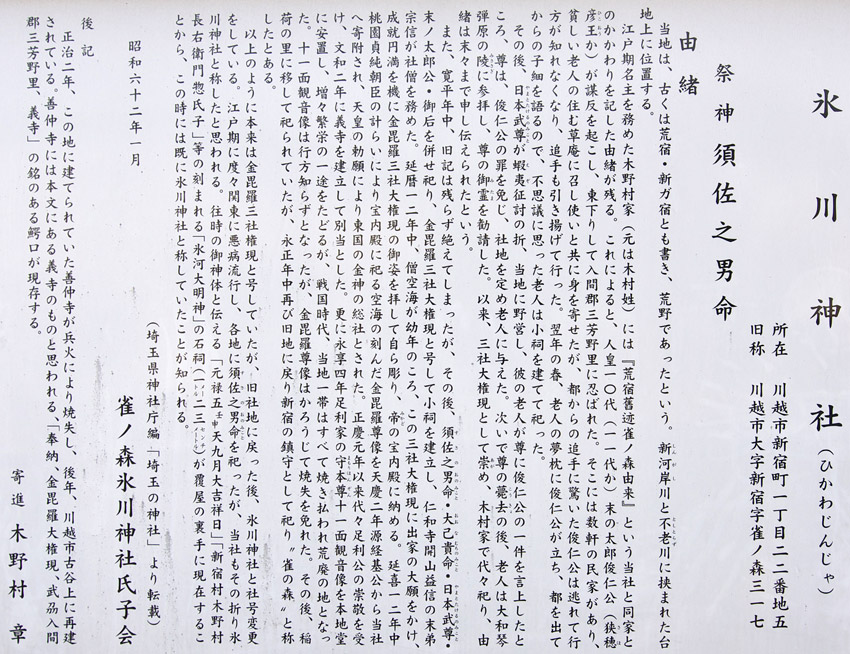 氷川神社(ひかわじんじゃ)
所在 川越市新宿町一丁目二二番地五
旧称 川越市大字新宿字雀ノ森三一七
祭神 須佐之男命
由緒
当地は、古くは荒宿・新ガ宿とも書き、荒野であったという。新河岸川と不老川に挟まれた台
地上に位置する。
江戸期名主を務めた木野村家(元は木村姓)には『荒宿舊迹雀ノ森由来』という当社と同家と
のかかわりを記した由緒が残る。これによると、人皇一〇代(一一代か)末の太郎俊仁公(狭穂
彦王か)が謀反を起こし、東下りして入間郡三芳野里に忍ばれた。そこには数軒の民家があり、
貧しい老人の住む草庵に召し使いと共に身を寄せたが、都からの追手に驚いた俊仁公は逃れて行
方が知れなくなり、追手も引き揚げて行った。翌年の春、老人の夢枕に俊仁公が立ち、都を出て
からの子細を語るので、不思議に思った老人は小祠を建てて祀った。
その後、日本武尊が蝦夷征討の折、当地に野営し、彼の老人が尊に俊仁公の一件を言上したと
ころ、尊は、俊仁公の罪を免じ、社地を定め老人に与えた。次いで尊の薨去の後、老人は大和琴
弾原の陵に参拝し、尊の御霊を勧請した。以来、三社大権現として崇め、木村家で代々祀り、由
緒は末々まで申し伝えられたという。
また、寛平年中、旧記は残らず絶えてしまったが、その後、須佐之男命・大己貴命・日本武尊・
末ノ太郎公・御后を併せ祀り、金毘羅三社大権現と号して小祠を建立し、仁和寺開山益信の末弟
宗信が社僧を務めた。延暦一二年中、僧空海が幼年のころ、この三社大権現に出家の大願をかけ、
成就円満を機に金毘羅三社大権現の御姿を拝して自ら彫り、帝の宝内殿に納める。延喜一二年中
桃園貞純朝臣の計らいにより宝内殿に祀る空海の刻んだ金毘羅尊像を天慶二年源経基公から当社
へ寄附され、天皇の勅願により東国の金神の総社とされた。正慶元年以来代々足利公の崇敬を受
け、文和二年に義寺を建立して別当とした。更に永享四年足利家の守本尊十一面観音像を本地堂
に安置し、増々繁栄の一途をたどるが、戦国時代、当地一帯はすべて焼き払われ荒廃の地となっ
た。十一面観音像は行方知らずとなったが、金毘羅尊像はかろうじて焼失を免れた。その後、稲
荷の里に移して祀られていたが、永正年中再び旧地に戻り新宿の鎮守として祀り〝雀の森〟と称
したとある。
以上のように本来は金毘羅三社大権現と号していたが、旧社地に戻った後、氷川神社と社号変更
をしている。江戸期に度々関東に悪病流行し、各地に須佐之男命を祀ったが、当社もその折り氷
川神社と称したと思われる。往時の御神体と伝える「元禄五壬申天九月大吉祥日」「新宿村木野村
長右衛門惣氏子」等の刻まれる「氷河大明神」の石祠(二三センチ)が覆屋の裏手に現在するこ
とから、この時には既に氷川神社と称していたことが知られる。
(埼玉県神社庁編「埼玉の神社」より転載)
昭和六十二年一月
雀ノ森氷川神社氏子会
後記
正治二年、この地に建てられていた善仲寺が兵火により焼失し、後年、川越市古谷上に再建
されている。善仲寺には本文にある義寺のものと思われる、「奉納 金毘羅大権現、武刕入間
郡三芳野里、義寺」の銘のある鰐口が現存する。
寄進 木野村章